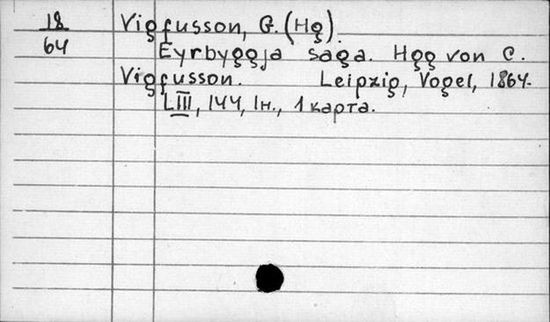 18 Vigfusson, G. (Hg).
64 Eyrbyggja saga. Hgg von C.
Vigfusson. Leipzig, Vogel, 1864.
LIII, 144, 1н., 1 карта.